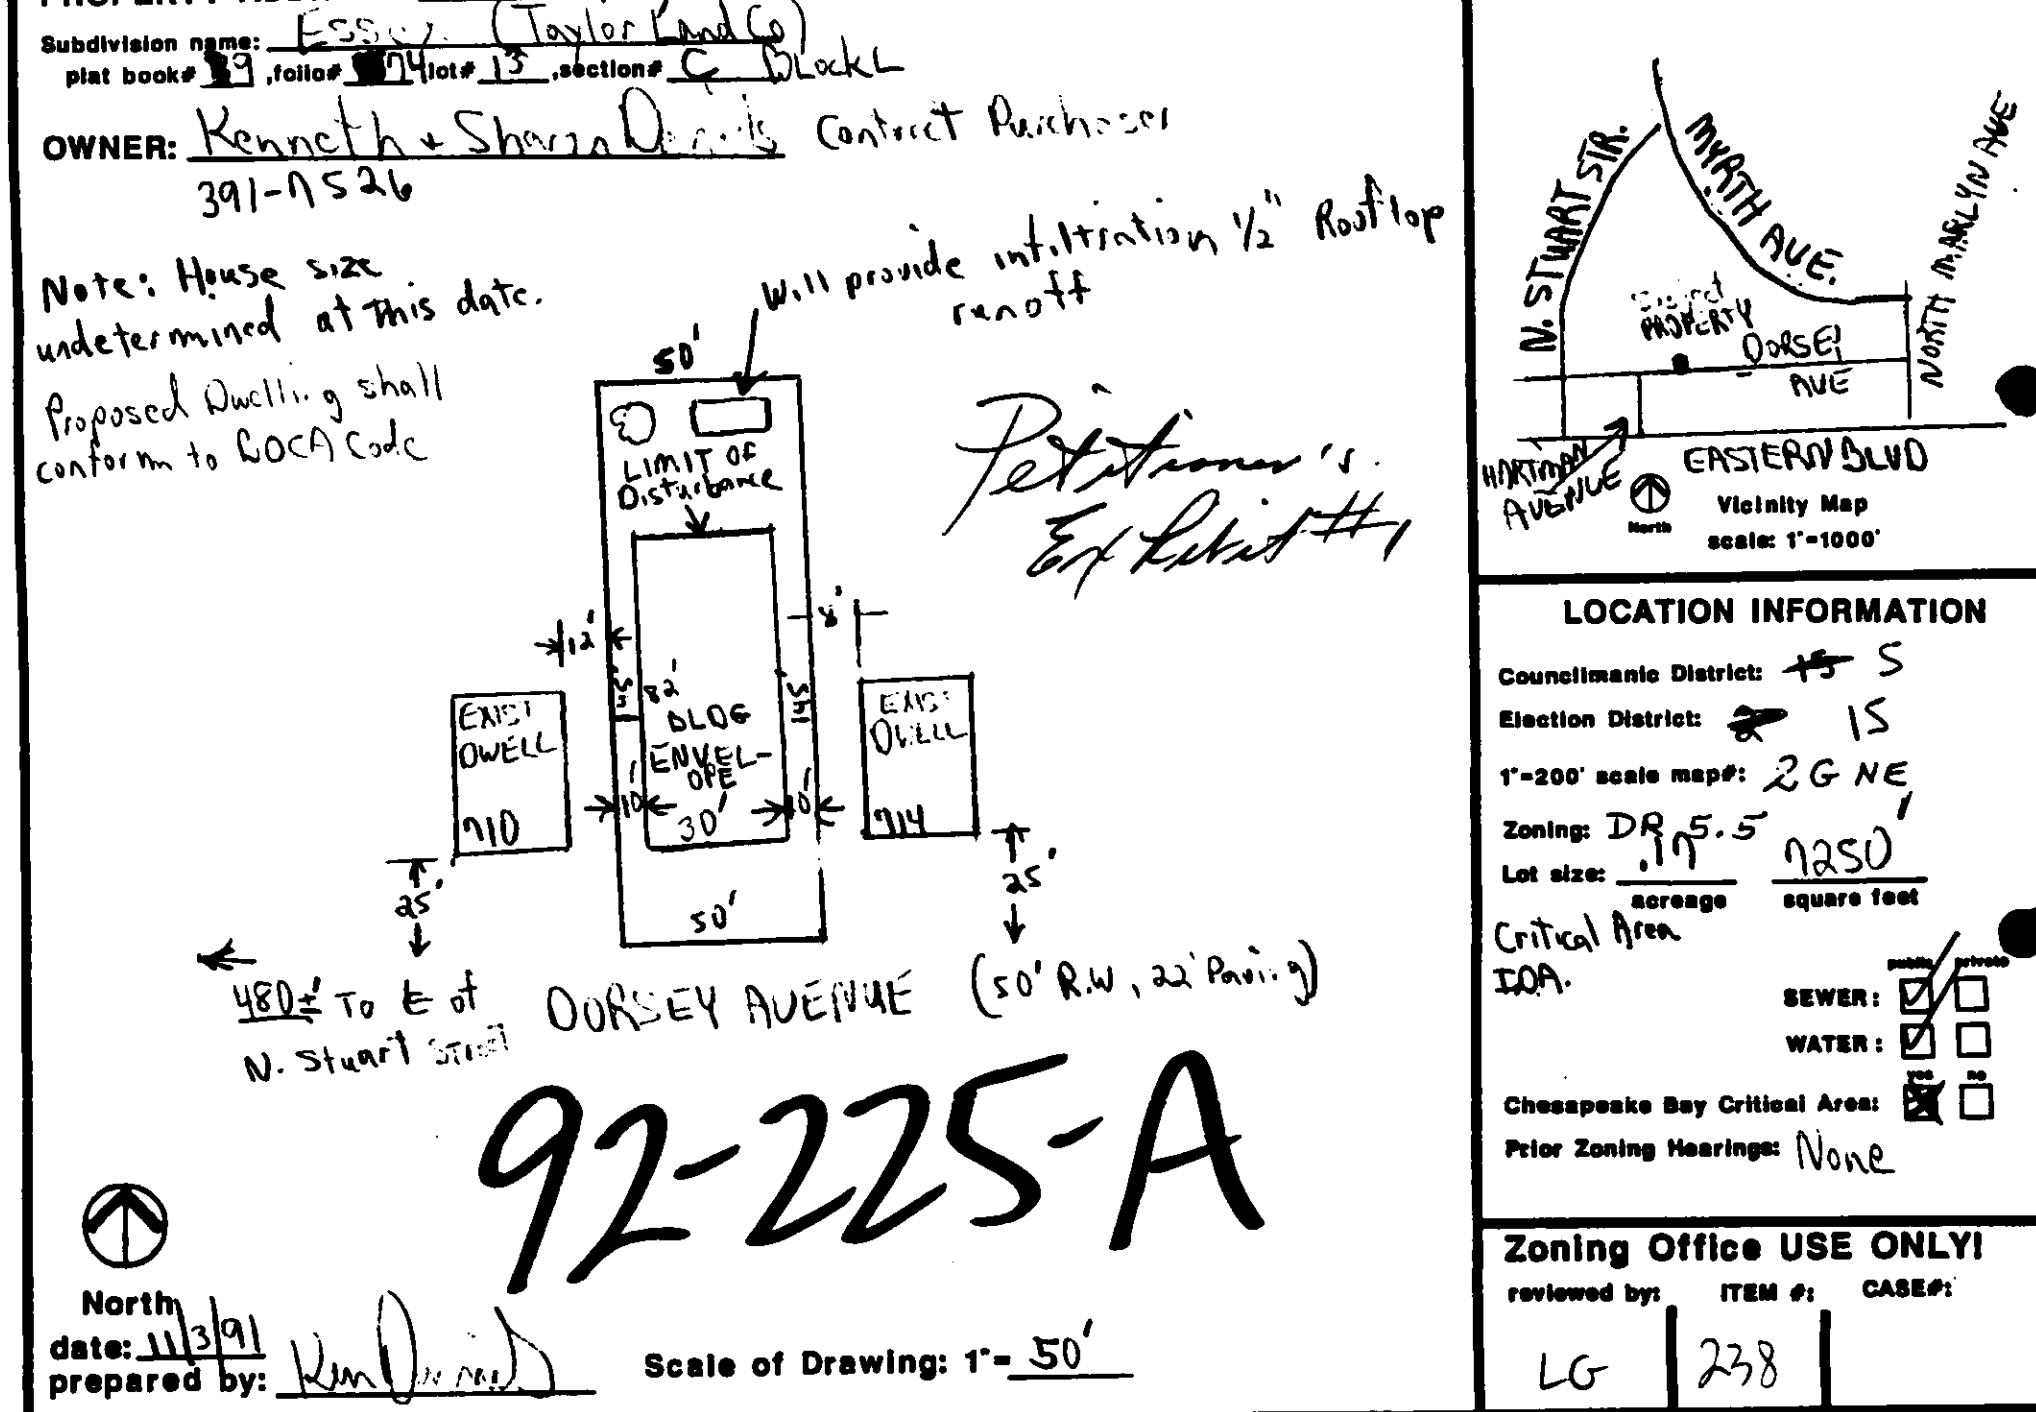 Subdivision name: Essex (Taylor Land Co)
plat book# 9 ,folio# 74 lot# 13 ,section# C Block L
OWNER: Kenneth & Sharon Contract Purchaser
391-7526
Note: House size
undetermined at this date.
Proposed Dwelling shall
conform to BOCA Code
Will provide infiltration 1/2" Rooftop
runoff
50'
LIMIT OF
Disturbance
Petitioner's
Exhibit #1
12'
8'
145'
82'
145'
BLDG
ENVEL-
OPE
10'
30'
10'
EXIST
DWELL
710
EXIST
DWELL
714
25'
25'
50'
480± To ℄ of
N. Stuart Street
DORSEY AVENUE (50' R.W, 22' Paving)
92-225-A
North
date: 11/3/91
prepared by: Ken
Scale of Drawing: 1"= 50'
N. STUART STR.
MYRTH AVE.
NORTH MARLYN AVE
Subject
PROPERTY
DORSEY
AVE
HARTMAN
AVENUE
EASTERN BLVD
North
Vicinity Map
scale: 1"=1000'
LOCATION INFORMATION
Councilmanic District: 15 5
Election District: 2 15
1"=200' scale map#: 2G NE
Zoning: DR 5.5
Lot size: .17 7250'
acreage square feet
Critical Area
I.D.A.
public private
SEWER:
WATER:
yes no
Chesapeake Bay Critical Area:
Prior Zoning Hearings: None
Zoning Office USE ONLY!
reviewed by: ITEM #: CASE#:
LG 238